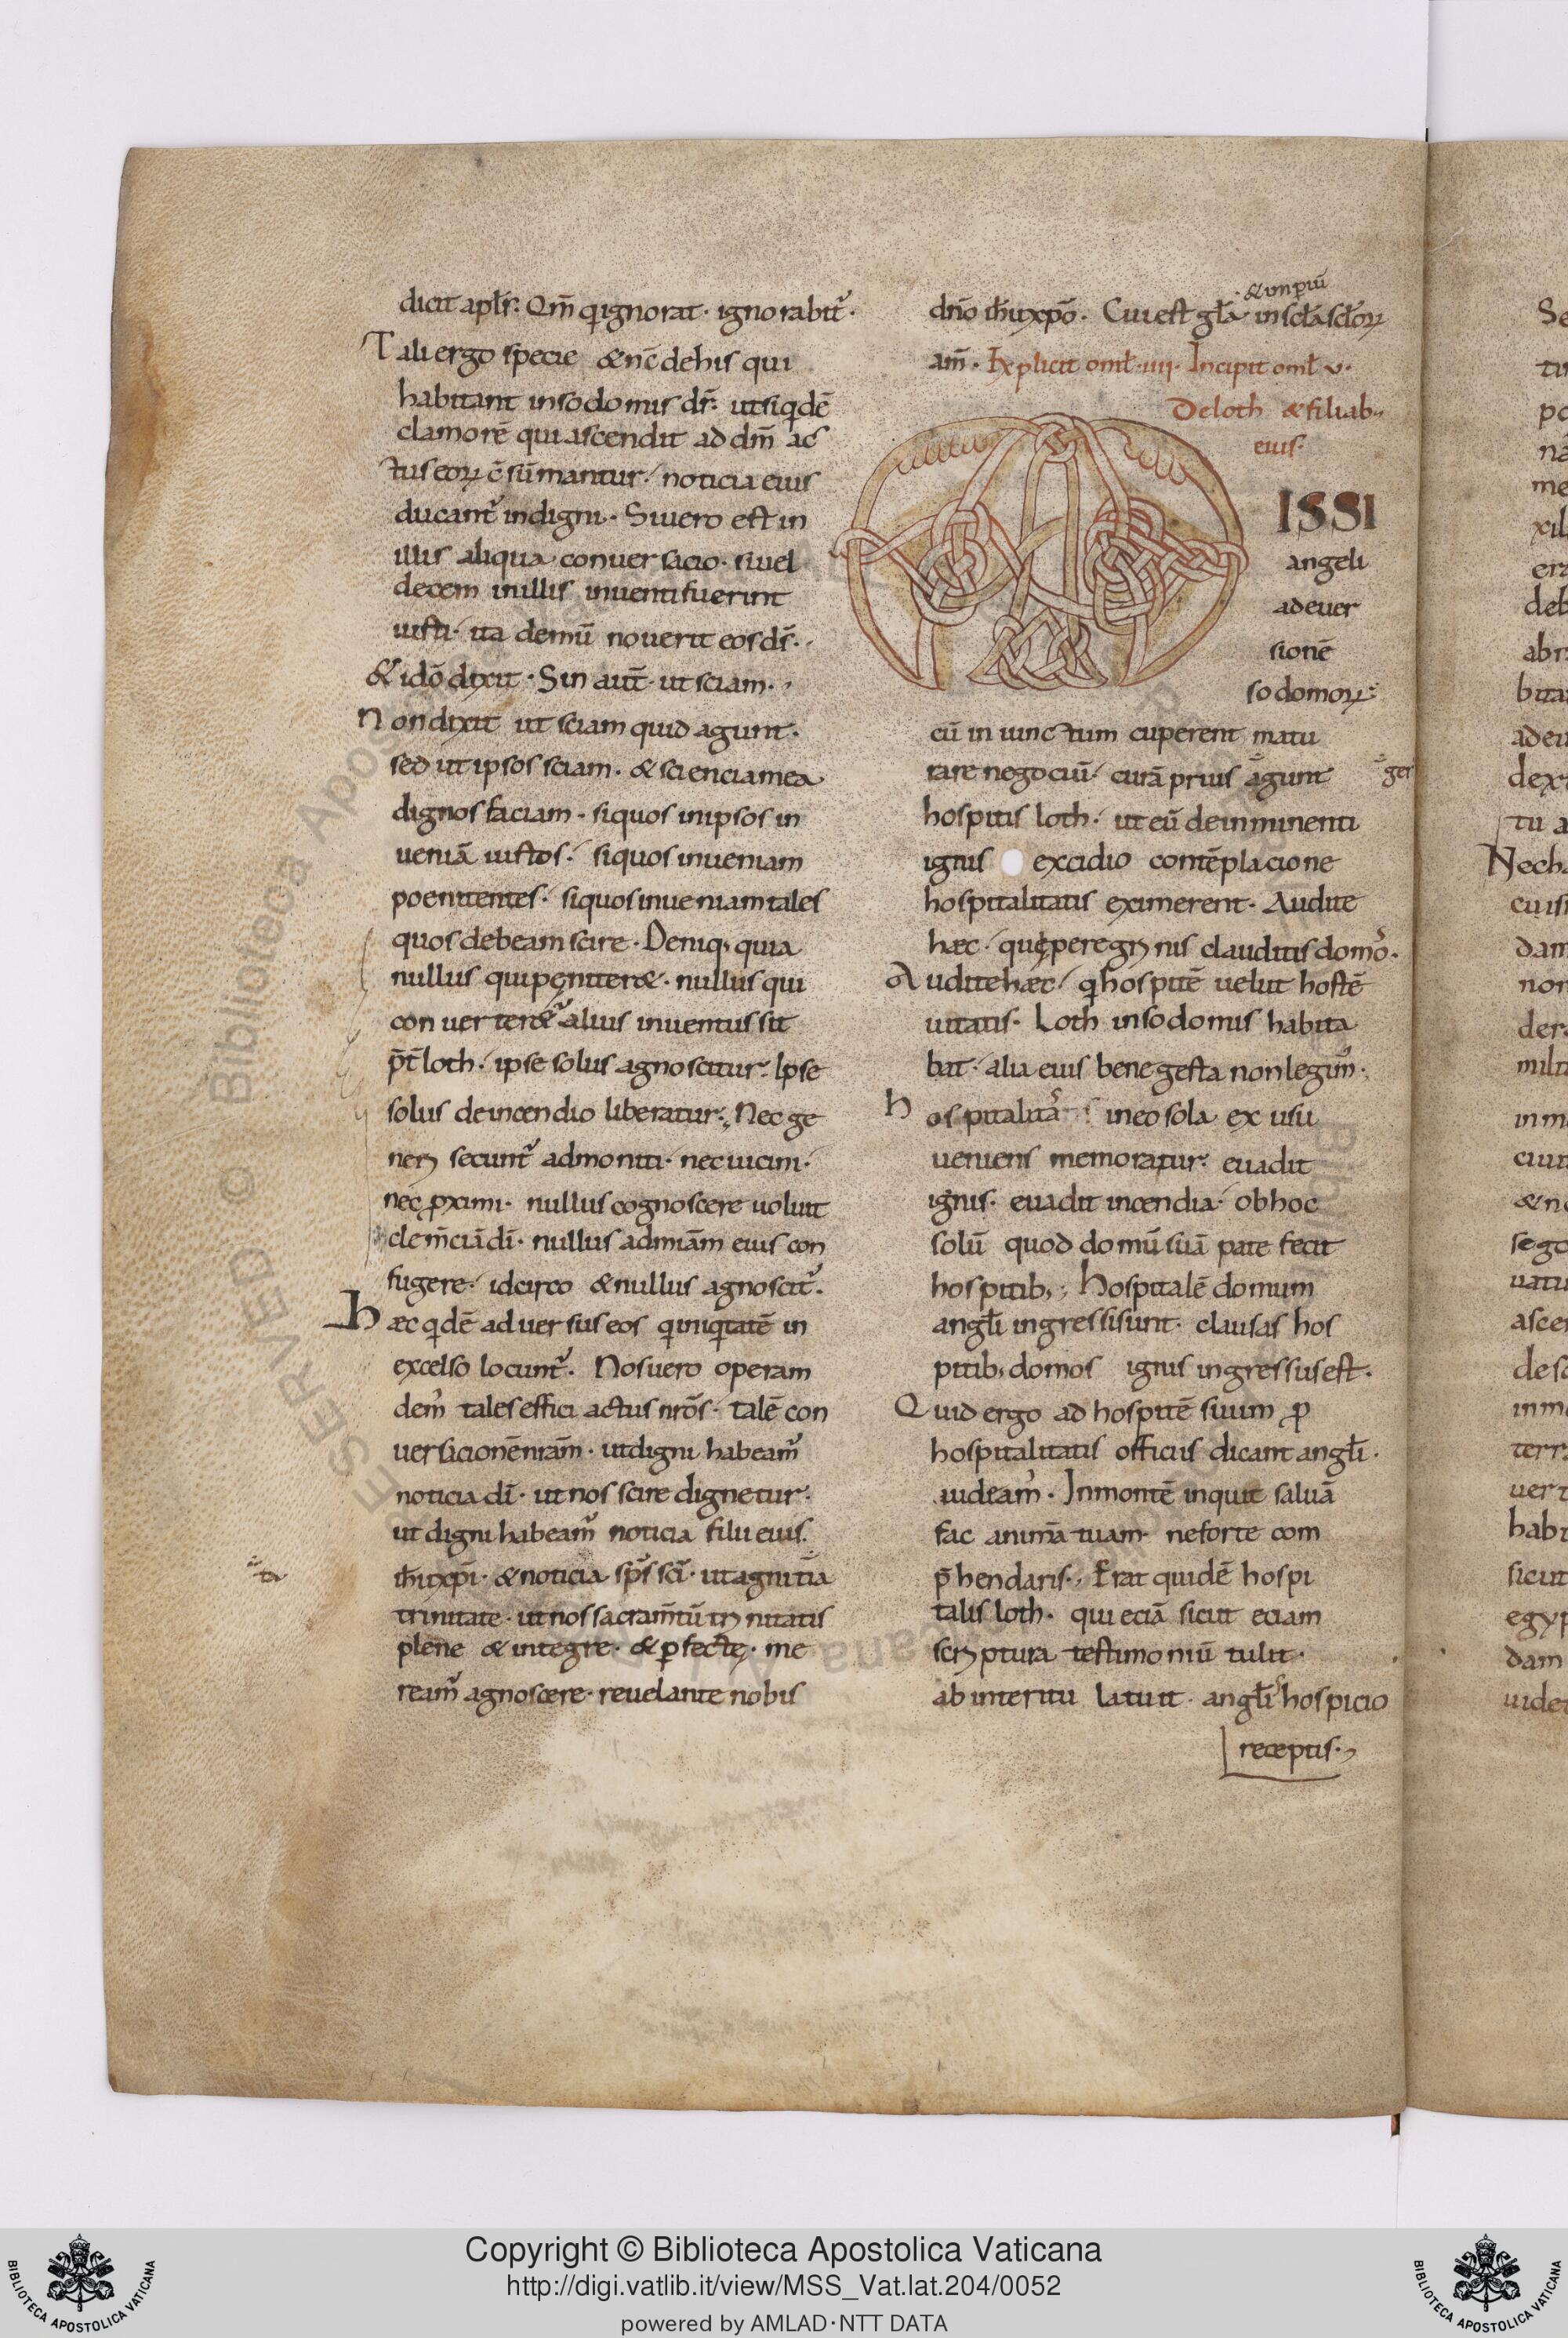 dicit apl̄s. Qm̄ q ignorat. ignorabit᷑.
Tali ergo specie & nc̄ de his qui
habitant in sodomis dr̄. ut siqdē
clamorē qui ascendit ad dm̄ ac
tus eoꝝ c̄sūmantur. noticia eius
ducant᷑ indigni. Si uero est in
illis aliqua conuersacio. si uel
decem in illis inuenti fuerint
iusti. ita demū nouerit eos ds̄.
& idō dixit. Sin aut̄. ut sciam.
Non dixit ut sciam quid agunt.
sed ut ipsos sciam. & sciencia mea
dignos faciam. si quos in ipsos in
ueniā iustos. si quos inueniam
poenitentes. si quos inueniam tales
quos debeam scire. Deniq; quia
nullus qui pęniter&. nullus qui
conuerter&᷑ alius inuentus sit
p̄t loth. ipse solus agnoscitur. Ipse
solus de incendio liberatur. Nec ge
neri secunt᷑ admoniti. nec uicini.
nec ꝓximi. nullus cognoscere uoluit
clem̄ciā dī. nullus ad miām eius con
fugere. idcirco & nullus agnoscit᷑.
Hæc qdē aduersus eos q iniqtatē in
excelso locunt᷑. Nos uero operam
dem᷒ tales effici actus nrōs. talē con
uersacionē nrām. ut digni habeam᷒
noticia dī. ut nos scire dignetur.
ut digni habeam᷒ noticia filii eius.
ih̄u xp̄i. & noticia sp̄s sc̄i. ut agnitia
ta
trinitate. ut nos sacram̄tū trinitatis
plene & integre. & ꝑfectę. me
ream᷒ agnoscere. reuelante nobis
dn̄o ih̄u xp̄o. Cui est gl̄a in scl̄a scl̄oꝝ
& imperiū
am̄. Explicit oml̄. iiii. Incipit oml̄ v.
De loth & filiab;
eius.
MISSI
angeli
ad euer
sionē
sodomoꝝ
cū iniunctum cuperent matu
rare negociū. curā prius agunt
ger
hospitis loth. ut eū de inminenti
ignis excidio contēplacione
hospitalitatis eximerent. Audite
hæc. qui peregrinis clauditis domo᷒.
Audite hæc. q hospitē uelut hostē
uitatis. Loth in sodomis habita
bat. alia eius bene gesta non legim᷒.
Hospitalitas in eo sola ex usu
ueniens memoratur. euadit
ignis. euadit incendia. ob hoc
solū quod domū suā pate fecit
hospitib;. Hospitalē domum
angl̄i ingressi sunt. clausas hos
pitib; domos ignis ingressus est.
Quid ergo ad hospitē suum ꝓ
hospitalitatis officiis dicant angl̄i.
uideam᷒. In montē inquit saluā
fac animā tuam. ne forte com
p̄hendaris. Erat quidē hospi
talis loth. qui eciā sicut eciam
scriptura testimoniū tulit.
ab interitu latuit. angl̄is hospicio
receptis.
Copyright © Biblioteca Apostolica Vaticana
http://digi.vatlib.it/view/MSS_Vat.lat.204/0052
powered by AMLAD·NTT DATA
BIBLIOTECA APOSTOLICA VATICANA
BIBLIOTECA APOSTOLICA VATICANA